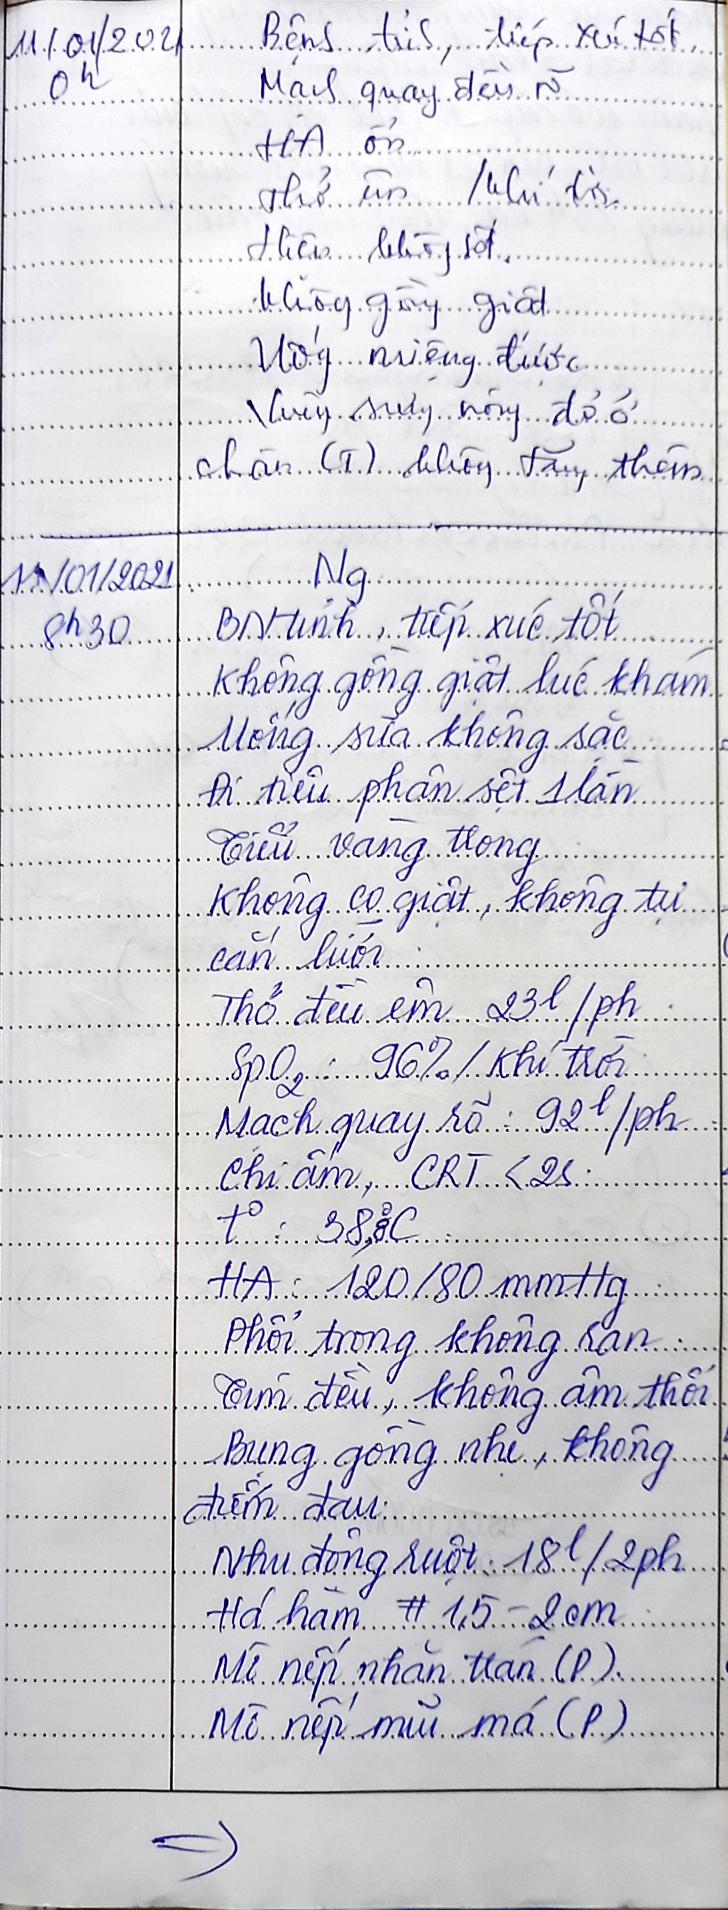 11/01/2021
0h
Bệnh tỉnh, tiếp xúc tốt
Mạch quay đều rõ
HA ổn
Thở êm /khí trời
Hiện không sốt.
Không gồng giật
Uống miệng được
Vùng sưng nóng đỏ ở
chân (T) không tăng thêm
11/01/2021
8h30
Ng
BN tỉnh, tiếp xúc tốt
Không gồng giật lúc khám
Uống sữa không sặc
Đi tiêu phân sệt 1 lần
Tiểu vàng trong
Không co giật, không tự
cắn lưỡi
Thở đều êm 23l/ph
SpO2: 96%/khí trời
Mạch quay rõ: 92l/ph
Chi ấm, CRT <2s
t°: °C
HA: 120/80 mmHg
Phổi trong không ran
Tim đều, không âm thổi
Bụng gồng nhẹ, không
điểm đau
Nhu động ruột: 18l/2ph
Há hàm # 1,5-2cm
Mờ nếp nhăn trán (P).
Mờ nếp mũi má (P)